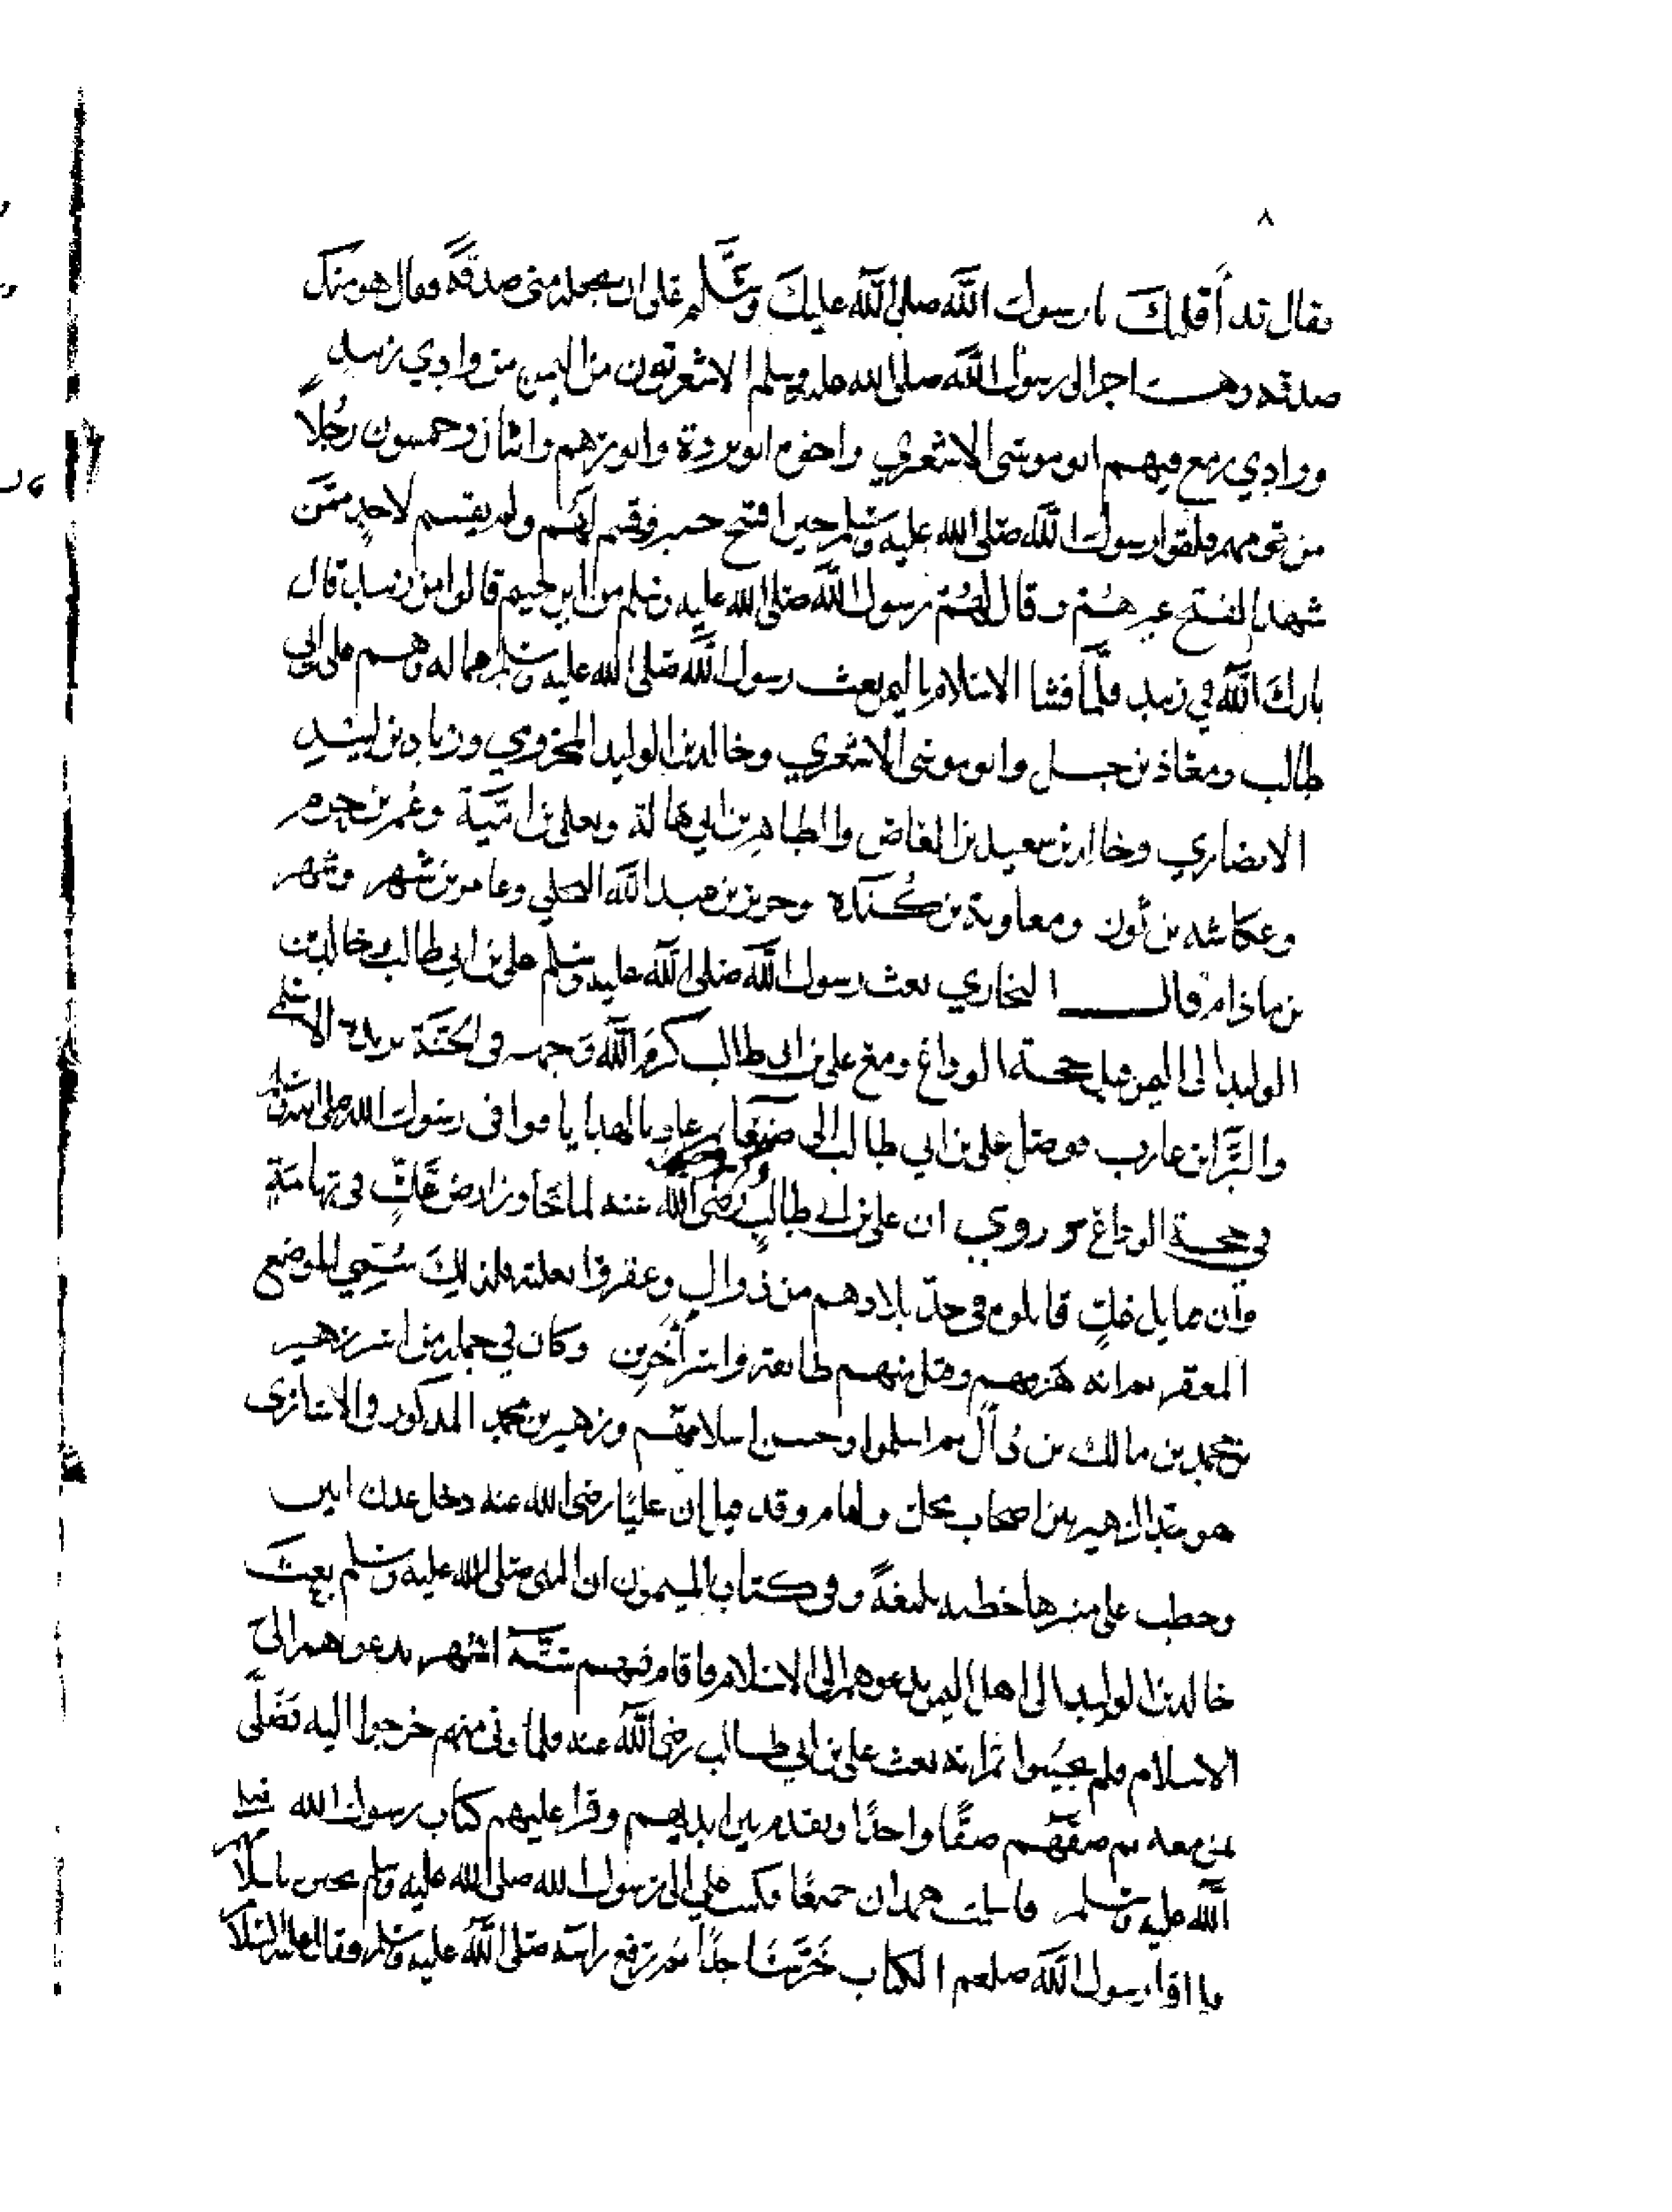 ٨
فقال قد أقلتك يا رسول الله صلى الله عليك وسلم على ان تجعله منى صدقة فقال هو منك
صدقه وهاجر الى رسول الله صلى الله عليه وسلم الاشعريون من اليمن من وادي زبيد
ووادي رمع فيهم ابو موسى الاشعري واخوه ابو بردة وابو رهم واثنان وخمسون رجلاً
من قومهم فلقوا رسول الله صلى الله عليه وسلم حين افتتح خيبر فقسم لهم ولم يقسم لاحدٍ ممّن
شهد الفتح غيرهم وقال لهم رسول الله صلى الله عليه وسلم من اين جيتم قالوا من زبيد قال
بارك الله في زبيد فلمّا فشا الاسلام باليمن بعث رسول الله صلى الله عليه وسلم عماله وهم على ابن ابي
طالب ومعاذ بن جبل وابو موسى الاشعري وخالد بن الوليد المخزومي وزياد بن لبيد
الانصاري وخالد بن سعيد بن العاص والطاهر بن ابي هالة ويعلى بن اميّة وعمر بن حزم
وعكاشه بن ثور ومعاوية بن كندة وجرير بن عبد الله البجلي وعامر بن شهر وشهر
بن باذام قال البخاري بعث رسول الله صلى الله عليه وسلم على بن ابي طالب وخالد بن
الوليد الى اليمن قبل حجة الوداع ومع على بن ابى طالب كرم الله وجهه فى الجنة بريدة الاسلمي
والبرّا بن عازب فوصل على بن ابي طالب الى صنعا وعاد بالهدايا فوافى رسول الله صلى الله عليه وسلم
في حجة الوداع وروي ان على بن ابى طالب رضى الله عنه لما تجاوز ارض عكٍّ فى تهامة
وان قبايل عكٍّ قاتلوه فى حدّ بلادهم من ذوالٍ وعقروا بغلته فلذلك سُمّي الموضع
المعقر ثم انه هزمهم وقتل منهم طائفة واسر آخرين وكان في جملة من اسر زهير
بن محمد بن مالك بن ذُآل ثم اسلموا وحسن اسلامهم وزهير بن محمد المذكور
هو جد الزهيريين اصحاب محل وقد قيل إن عليًا رضى الله عنه دخل عدن ابين
وخطب على منبرها خطبه بليغةً وفى كتاب الميمون ان النبى صلى الله عليه وسلم بعث
خالد بن الوليد الى اهل اليمن يدعوهم الى الاسلام فاقام فيهم ستّة اشهر يدعوهم الى
الاسلام فلم يجيبوا ثم انه بعث على بن ابي طالب رضى الله عنه فلما دنى منهم خرجوا اليه فصلّى
بمن معه ثم صفّهم صفًّا واحدًا وتقدم بين ايديهم وقرا عليهم كتاب رسول الله صلى
الله عليه وسلم فاسلمت همدان جميعًا فكتب علي الى رسول الله صلى الله عليه وسلم يخبره باسلامهم
فلما قرا رسول الله صلعم الكتاب خرّ ساجدًا ثم رفع راسه صلى الله عليه وسلم وقال السلام